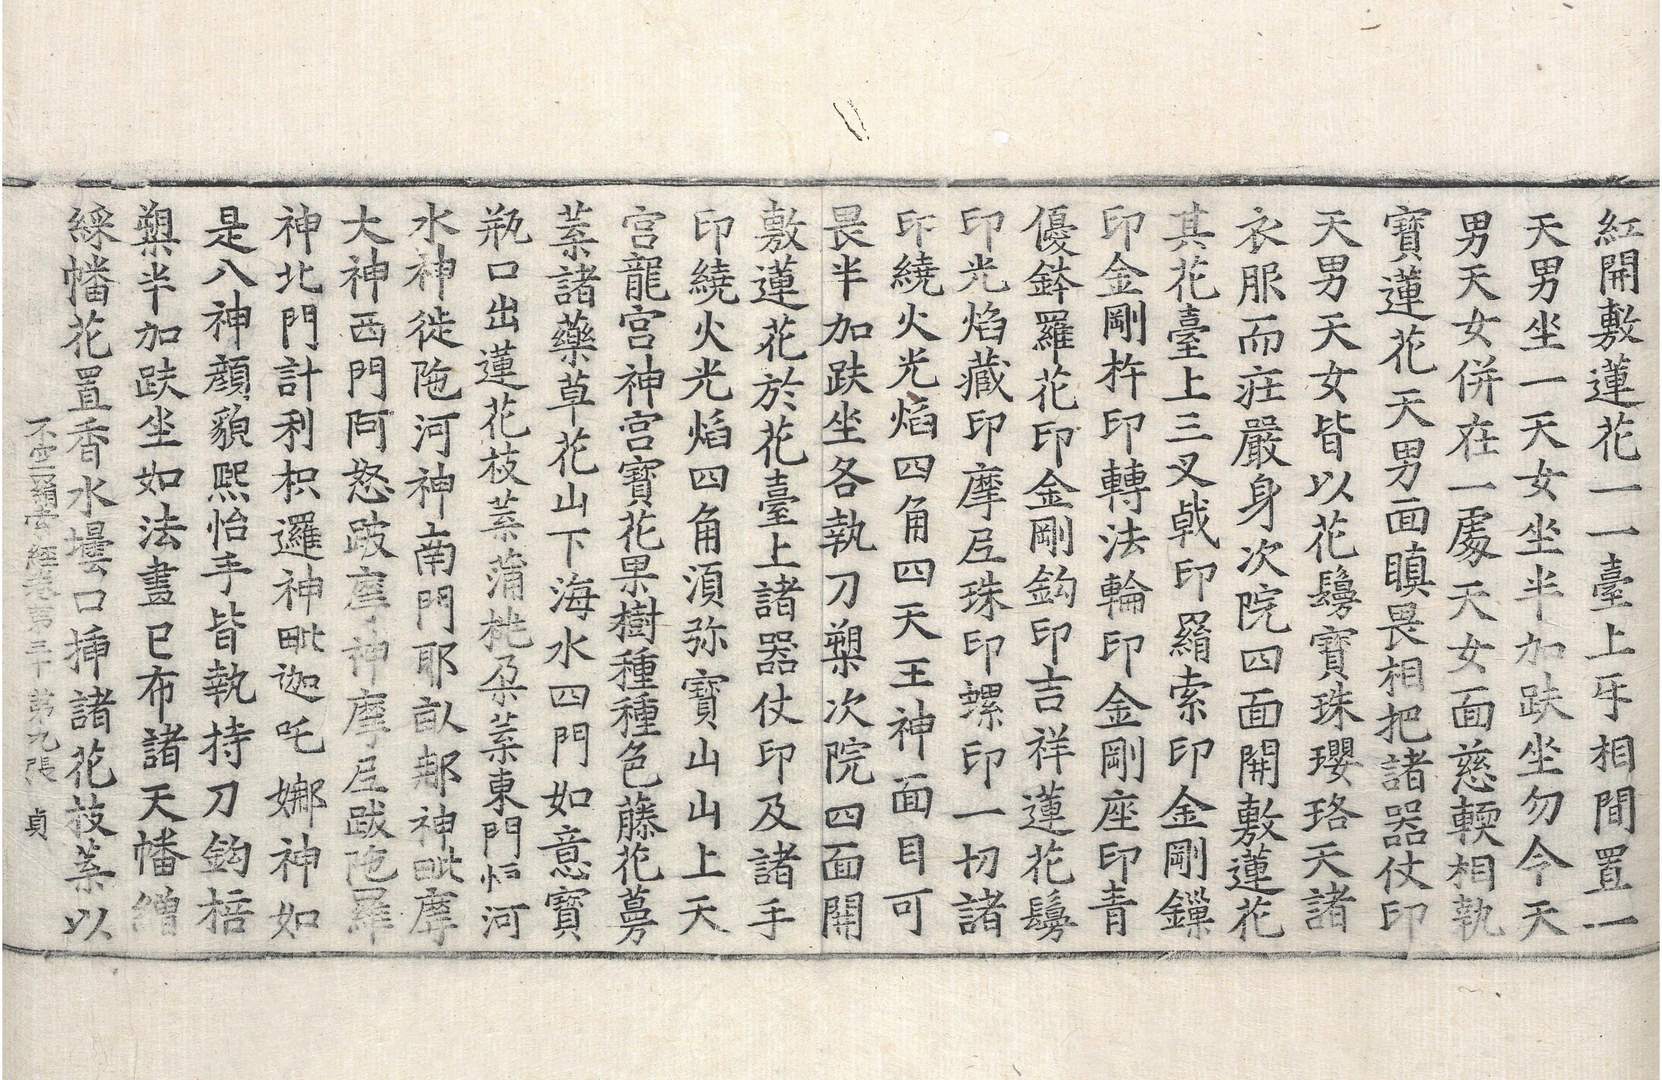 紅開敷蓮花一一臺上㸦相間置一
天男坐一天女坐半加趺坐勿令天
男天女併在一處天女面慈輭相執
寶蓮花天男面瞋畏相把諸器仗印
天男天女皆以花鬘寶珠瓔珞天諸
衣服而莊嚴身次院四面開敷蓮花
其花臺上三叉戟印羂索印金剛鏁
印金剛杵印轉法輪印金剛座印青
優鉢羅花印金剛鉤印吉祥蓮花鬘
印光焰藏印摩尼珠印螺印一切諸
印繞火光焰四角四天王神面目可
畏半加趺坐各執刀槊次院四面開
敷蓮花於花臺上諸器仗印及諸手
印繞火光焰四角湏弥寶山山上天
宮龍宮神宮寶花果樹種種色藤花蔓
葉諸藥草花山下海水四門如意寶
瓶口出蓮花枝葉蒲桃朶葉東門妒河
水神徙陁河神南門耶畝那神毗摩
大神西門阿怒跛摩神摩尼跋陁羅
神北門計利枳邏神毗迦吒娜神如
是八神顏貌熙怡手皆執持刀鉤棓
槊半加趺坐如法畫已布諸天幡繒
綵幡花置香水罍口揷諸花枝葉以
不空羂索經卷第三十 第九張 貞